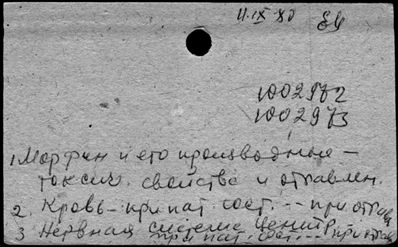 11.IX 80
1002972
1002973
1 Морфин и его производные -
токсич. свойства и отравлен.
2. Кровь - при пат. сост. -- при отрав
3 Нервная система центр
при пат. сост. -- при отрав